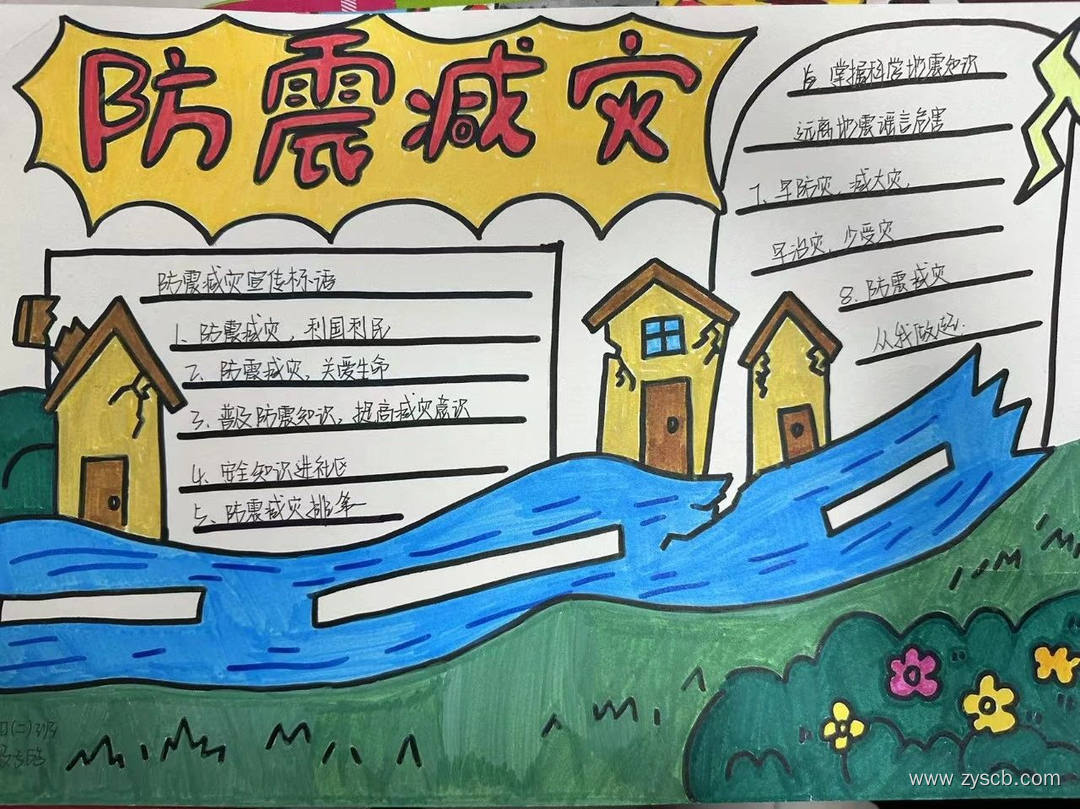 防震减灾
防震减灾宣传标语
1、防震减灾，利国利民
2、防震减灾，关爱生命
3、普及防震知识，提高减灾意识
4、安全知识进社区
5、防震减灾
掌握科学地震知识
远离地震谣言危害
7、早防灾，减大灾，
早治灾，少受灾
8、防震减灾
从我做起.
(二)班
www.zyscb.com